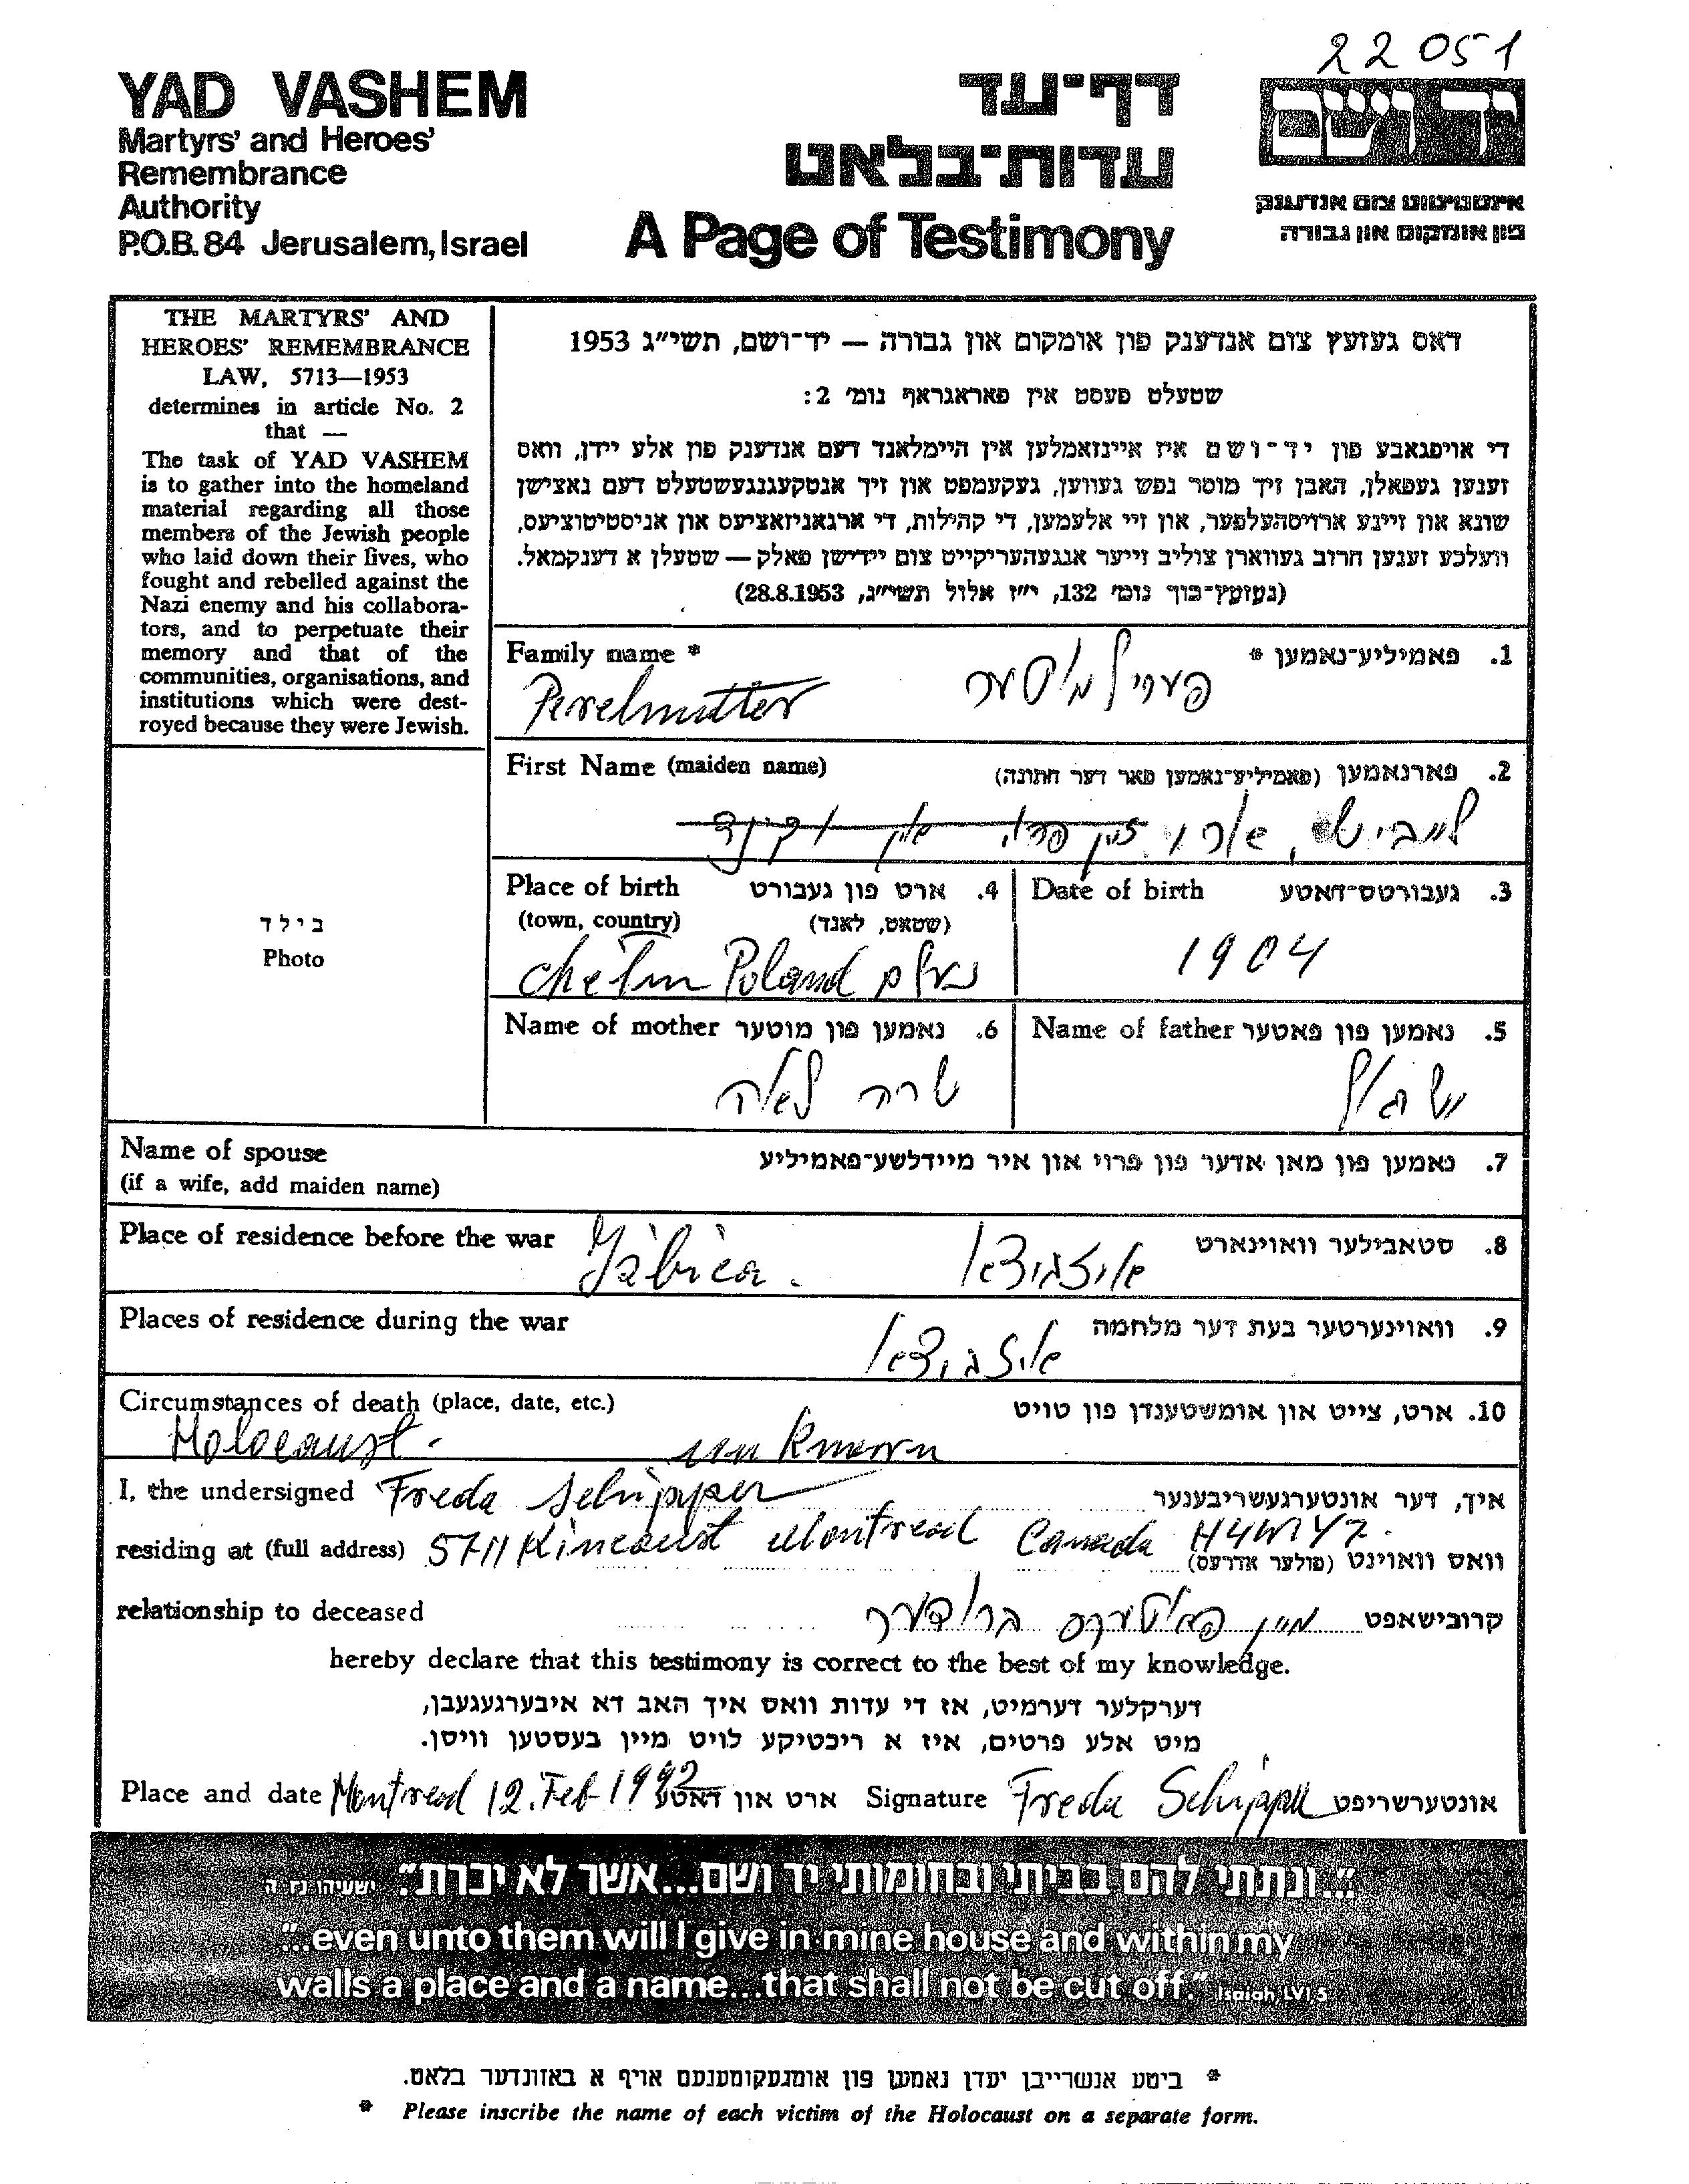 22051
YAD VASHEM
Martyrs' and Heroes'
Remembrance
Authority
P.O.B. 84 Jerusalem, Israel
דף־עד
עדות־בלאט
A Page of Testimony
יד ושם
אינסטיטוט צום אנדענק
פון אומקום און גבורה
THE MARTYRS' AND
HEROES' REMEMBRANCE
LAW, 5713—1953
determines in article No. 2
that —
The task of YAD VASHEM
is to gather into the homeland
material regarding all those
members of the Jewish people
who laid down their lives, who
fought and rebelled against the
Nazi enemy and his collabora-
tors, and to perpetuate their
memory and that of the
communities, organisations, and
institutions which were dest-
royed because they were Jewish.
דאס געזעץ צום אנדענק פון אומקום און גבורה — יד־ושם, תשי"ג 1953
שטעלט פעסט אין פאראגראף נומ' 2:
די אויפגאבע פון יד־ושם איז איינזאמלען אין היימלאנד דעם אנדענק פון אלע יידן, וואס
זענען געפאלן, האבן זיך מוסר נפש געווען, געקעמפט און זיך אנטקעגנגעשטעלט דעם נאצישן
שונא און זיינע ארויסהעלפער, און זיי אלעמען, די קהילות, די ארגאניזאציעס און אניסטיטוציעס,
וועלכע זענען חרוב געווארן צוליב זייער אנגעהעריקייט צום יידישן פאלק — שטעלן א דענקמאל.
(געזעץ־בוך נומ' 132, י"ז אלול תשי"ג, 28.8.1953)
בילד
Photo
Family name * 1. פאמיליע־נאמען *
Perelmutter
First Name (maiden name) 2. פארנאמען (פאמיליע־נאמען פאר דער חתונה)
לייביש,
Place of birth 4. ארט פון געבורט
(town, country) (שטאט, לאנד)
Chelm Poland כעלם
Date of birth 3. געבורטס־דאטע
1904
Name of mother 6. נאמען פון מוטער
שרה לאה
Name of father 5. נאמען פון פאטער
Name of spouse 7. נאמען פון מאן אדער פון פרוי און איר מיידלשע־פאמיליע
(if a wife, add maiden name)
Place of residence before the war 8. סטאבילער וואוינארט
איזביצא
Places of residence during the war 9. וואוינערטער בעת דער מלחמה
איזביצא
Circumstances of death (place, date, etc.) 10. ארט, צייט און אומשטענדן פון טויט
Holocaust.
I, the undersigned Freda Schipper איך, דער אונטערגעשריבענער
residing at (full address) 5711 Montreal Canada H4W1Y7. וואס וואוינט (פולער אדרעס)
relationship to deceased מיין פאטערס ברודער קרובישאפט
hereby declare that this testimony is correct to the best of my knowledge.
דערקלער דערמיט, אז די עדות וואס איך האב דא איבערגעגעבן,
מיט אלע פרטים, איז א ריכטיקע לויט מיין בעסטען וויסן.
Place and date Montreal 12. Feb 1992 ארט און דאטע Signature Freda Schipper אונטערשריפט
"...ונתתי להם בביתי ובחומותי יד ושם...אשר לא יכרת" ישעיהו נו, ה
"...even unto them will I give in mine house and within my
walls a place and a name...that shall not be cut off." Isaiah, LVI 5
* ביטע אנשרייבן יעדן נאמען פון אומגעקומענעם אויף א באזונדער בלאט.
* Please inscribe the name of each victim of the Holocaust on a separate form.